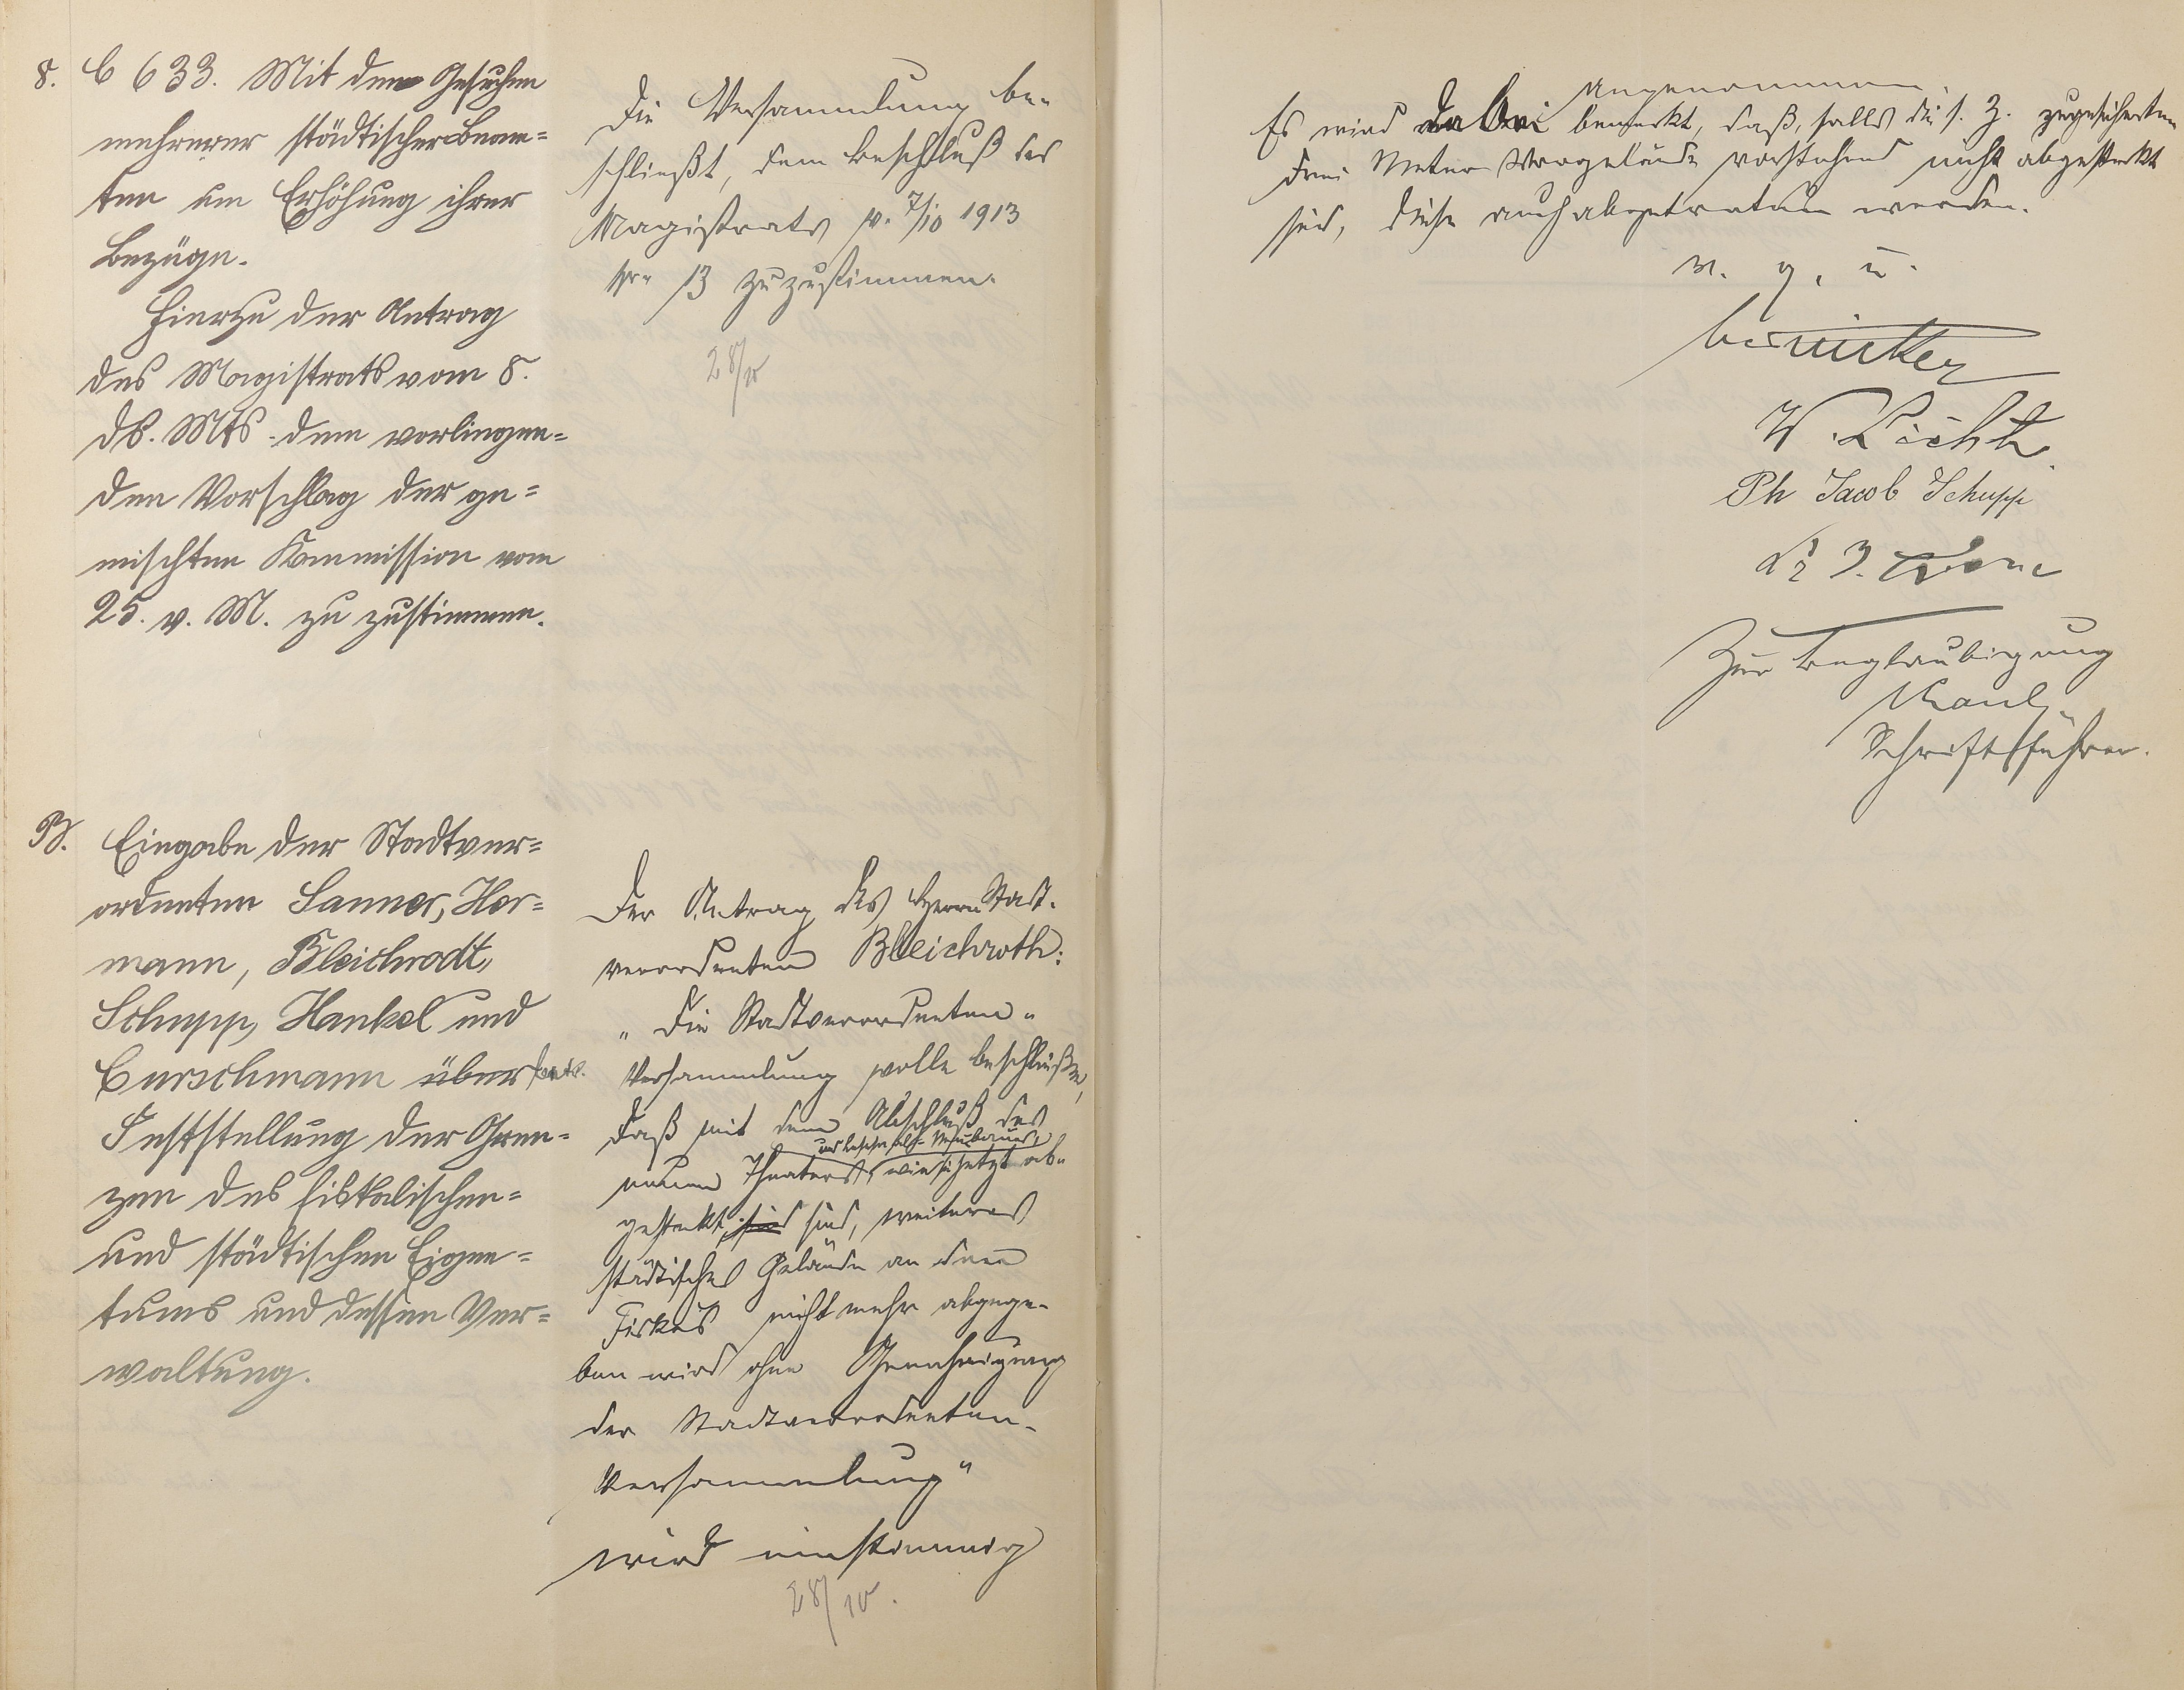 8. C 633. Mit den Gesuchen
mehrerer städtischer Beam=
ten um Erhöhung ihrer
Bezüge.
Hierzu der Antrag
des Magistrats vom 8.
ds. Mts. dem vorliegen=
den Vorschlag der ge=
mischten Kommission vom
25. v. M. zu zustimmen.
Die Versammlung be-
schließt, dem Beschluß des
Magistrats v. 7/10 1913
13 zuzustimmen.
28/10
B. Eingabe der Stadtver=
ordneten Sanner, Her=
mann, Bleichrodt,
Schupp, Hankel und
Curschmann über
Feststellung der Gren=
zen des fiskalischen=
und städtischen Eigen=
tums und dessen Ver=
waltung.
Der Antrag des Herrn Stadt-
verordneten Bleichroth:
"Die Stadtverordneten-
Versammlung wolle beschließen,
daß mit dem Abschluß des
neuen Theaters, wie sie jetzt ab-
gesteckt sind sind, weiteres
städtisches Gelände an den
Fiskus nicht mehr abgege-
ben wird ohne Genehmigung
der Stadtverordneten-
Versammlung"
wird einstimmig
28/10.
angenommen.
Es wird dabei bemerkt, daß, falls die s. Z. zugesicherten
drei Meter Vorgelände vorstehend nicht abgesteckt
sind, diese auch abgetreten werden.
v. g. u.
W. Licht
Ph Jacob Schupp
Zur Beglaubigung
Schriftführer.